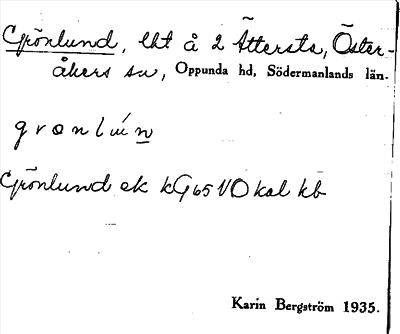 Grönlund, lht å 2 Ättersta, Öster-
åkers sn, Oppunda hd, Södermanlands län.
grønlún
Grönlund ek kG65 VO kal kb
Karin Bergström 1935.